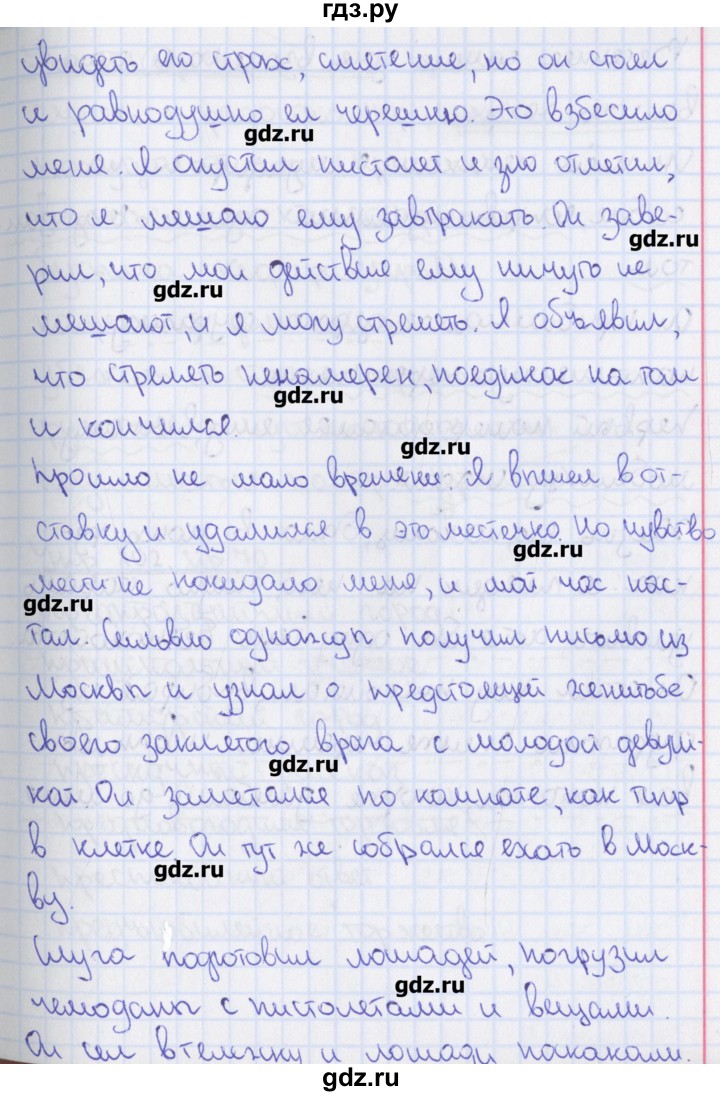 гдз.ру
увидеть его страх, смятение, но он стоял
и равнодушно ел черешню. Это взбесило
gdz.ru
меня. Я опустил пистолет и зло отметил,
что я мешаю ему завтракать. Он заве-
gdz.ru
рил, что мои действия ему ничуть не
gdz.ru
мешают, и я могу стрелять. Я объявил,
что стрелять не намерен, поединок на том
gdz.ru
и кончился.
gdz.ru
Прошло не мало времени. Я вышел в от-
ставку и удалился в это местечко. Но чувство
gdz.ru
мести не покидало меня, и мой час нас-
gdz.ru
тал. Сильвио однажды получил письмо из
Москвы и узнал о предстоящей женитьбе
своего заклятого врага с молодой девуш-
gdz.ru
кой. Он заметался по комнате, как тигр
в клетке. Он тут же собрался ехать в Моск-
gdz.ru
ву.
Слуга подготовил лошадей, погрузил
gdz.ru
чемоданы с пистолетами и вещами.
Он сел в тележку и лошади поскакали.
gdz.ru